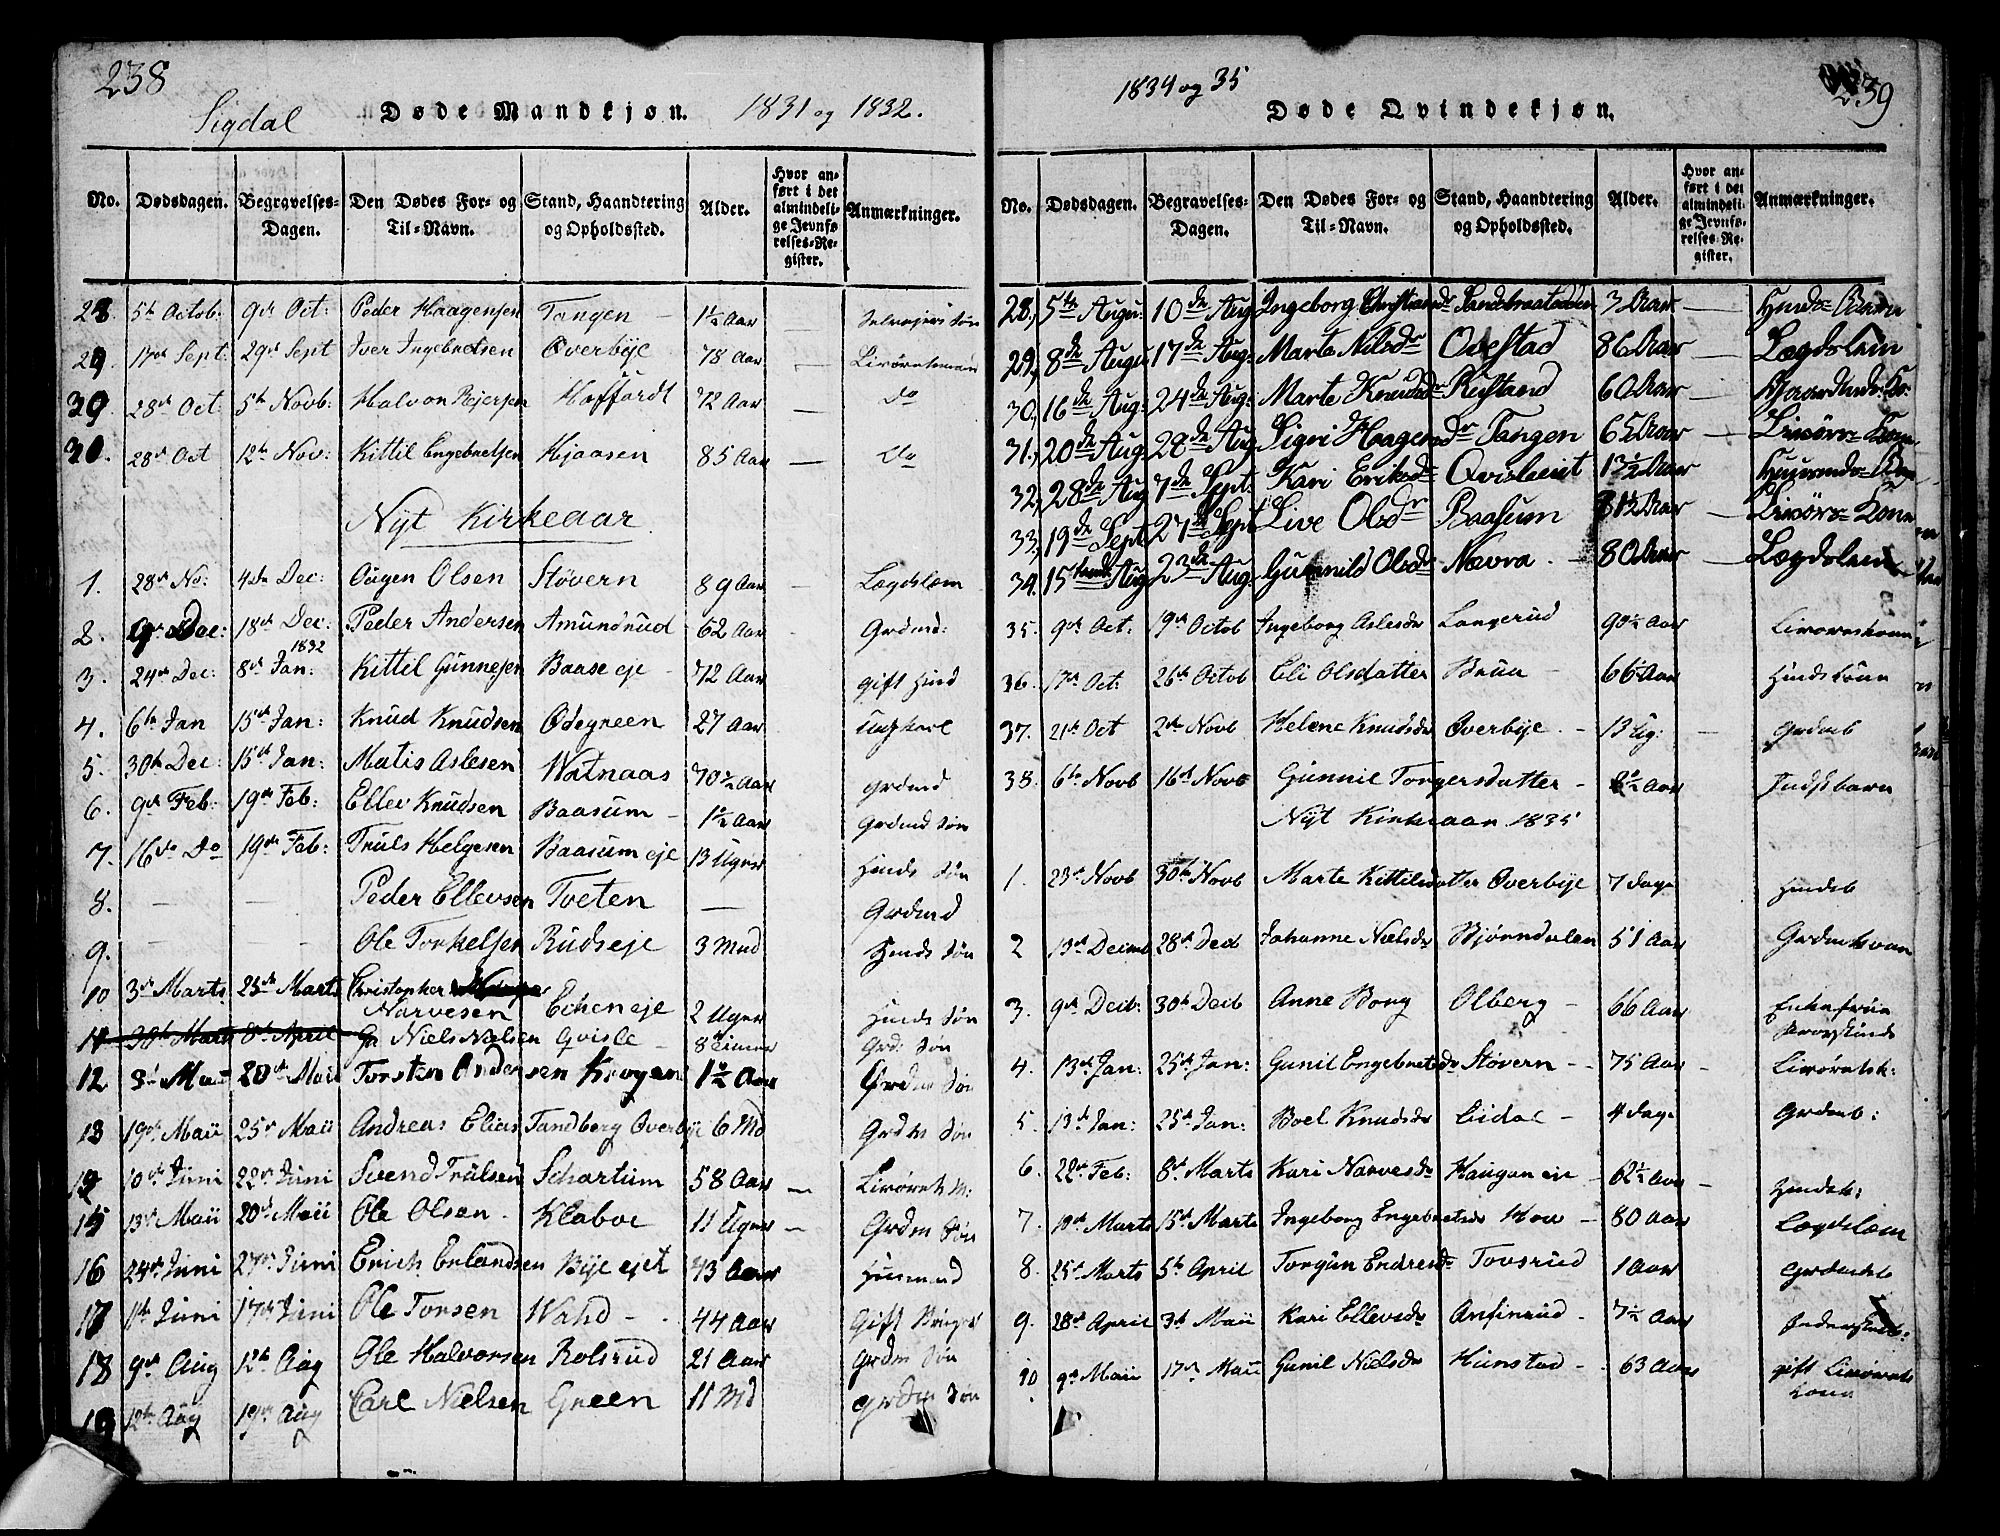 238
Sigdal Døde Mandkjøn. 1831 og 1832.
No. Dødsdagen. Begravelses-Dagen. Den Dødes For- og Til-Navn. Stand, Haandtering og Opholdssted. Alder. Hvor anført i det almindelige Jevnførelses-Register. Anmærkninger.
28. 5te Octob: 9de Oct: Peder Haagensen Tangen 1½ Aar — Selvejers Søn
29 17de Sept: 29de Sept Iver Ingebretsen Overbÿe 78 Aar —
29. 28de Oct 5te Novb: Halvon Haffardt 72 Aar — Do
30. 28de Oct 12te Nov: Kittil Engebretsen Kjaasen 85 Aar — Do
Nÿt Kirkeaar
1. 28de No: 4de Dec: Aügen Olsen Støvern 89 Aar Lægdslem
2. 9de Dec: 18de Dec: Peder Andersen Amundrud 62 Aar Grdmd:
3. 24de Dec: 8de Jan: 1832 Kittil Gunnesen Baase eje 72 Aar gift Hmd
4. 6te Jan 15de Jan: Knud Knudsen Ødegreen 27 Aar ungkarl
5. 30te Dec: 15de Jan: Matis Aslesen Watnaas 70½ Aar Grdmd
6. 9de Feb: 19de Feb: Ellev Knudsen Baasum 1½ Aar Grdmd Søn
7. 16de Do 19de Feb: Truls Helgesen Baasum eje 13 Uger Hmds Søn
8. — — Peder Ellevsen Tveten — Grdmd
9. — — Ole Torkelsen Rudseje 3 Mnd Hmds Søn
10 3de Marts 25de Marts Christopher Narvesen Echeneje 2 Uger Hmds Søn
11 30te Marts 8de April Niels Nielsen Qvisle 8 Timer Grd: Søn
12 3de Maü 20de Maü Torsten Andersen Krogen 1½ Aar Grdm Søn
13 19de Maü 25de Maü Andreas Elias Tandberg Overbÿe 6 Md Grdm Søn
10de Jüni 22de Jüni Svend Trülsen Schartum 58 Aar —
15 13de Maü 20de Maü Ole Olsen Kleboe 11 Uger — Grdm Søn
16 24de Jüni 27de Jüni Erich Erlandsen Bÿe ejet 43 Aar Husmand
17 1te Jüni 17de Jüni Ole Torsen Wahd 44 Aar Gift
18 9de Aug 12te Aug Ole Halvorsen Rolsrud 21 Aar Grdm Søn
19 12te Aüg 19de Aüg Carl Nielsen Green 11 Md Grdm Søn
239
1834 og 35
Døde Qvindekjøn.
No. Dødsdagen. Begravelses-Dagen. Den Dødes For- og Til-Navn. Stand, Haandtering og Opholdssted. Alder. Hvor anført i det almindelige Jevnførelses-Register. Anmærkninger.
28, 5te Augu: 10de Aug Ingeborg Christensdr 3 Aar —
29, 8de Augu 17de Aug: Marte Nilsdr Ovestad 86 Aar — Lægdslem
30, 16de Aug: 24de Aug: Marte Knudsdr Rustand 60 Aar —
31, 20de Aug 28de Aug Sigri Haagensdr Tangen 65 Aar — Livørs= Kone
32, 28de Aug 7de Sept: Kari Eriksdr 1½ Aar —
33, 19de Sept 27de Sept Live Olsdr Baasum 81½ Aar — Livørs= Kone
34. 15 Aug 23de Aug: Gunnild Olsdr Nævra 80 Aar — Lægdslem
35. 9de Oct: 19de Octob Ingeborg Aslesdr Langerud 90½ Aar
36. 17de Oct: 26de Octob Eli Olsdatter Brüe 66½ Aar
37. 21de Oct 2de Novb Helene Knudsdr Øverbÿe 13 Ug: — Grdmb
38. 6te Novb 16de Novb Gunnil Torgersdatter 2½ Aar Indstbarn
Nÿt Kirkeaar 1835
1. 23de Novb 30te Novb Marte Kittilsdatter Øverbÿe 7 Dage Hmdsb
2 13de Decmb 28de Decb Johanne Nielsdr Bjørndalen 51 Aar
3. 9de Decb: 30te Decb Anne Borg Olberg 66 Aar Enkefrüe
4. 13de Jan: 25de Jan: Gunil Engebretsdr Støvern 75 Aar —
5. 13de Jan: 25de Jan: Boel Knudsdr Eidal 4 Dage Grdmb:
6. 22de Feb: 8de Marts Kari Narvesdr Haugan eje 62½ Aar — Hmdsk:
7. 10de Marts 15de Marts Ingeborg Engebretsdr Hoe 80 Aar Lægdslem
8. 25de Marts 5te April Torgün Endresdr Tovsrüd 1 Aar
9. 28de April 3de Maü Kari Ellevsdr Anfinrüd 7½ Aar
10 9de Maü 17de Maü Gunil Nielsdr Hunstad 63 Aar gift Livørets kone